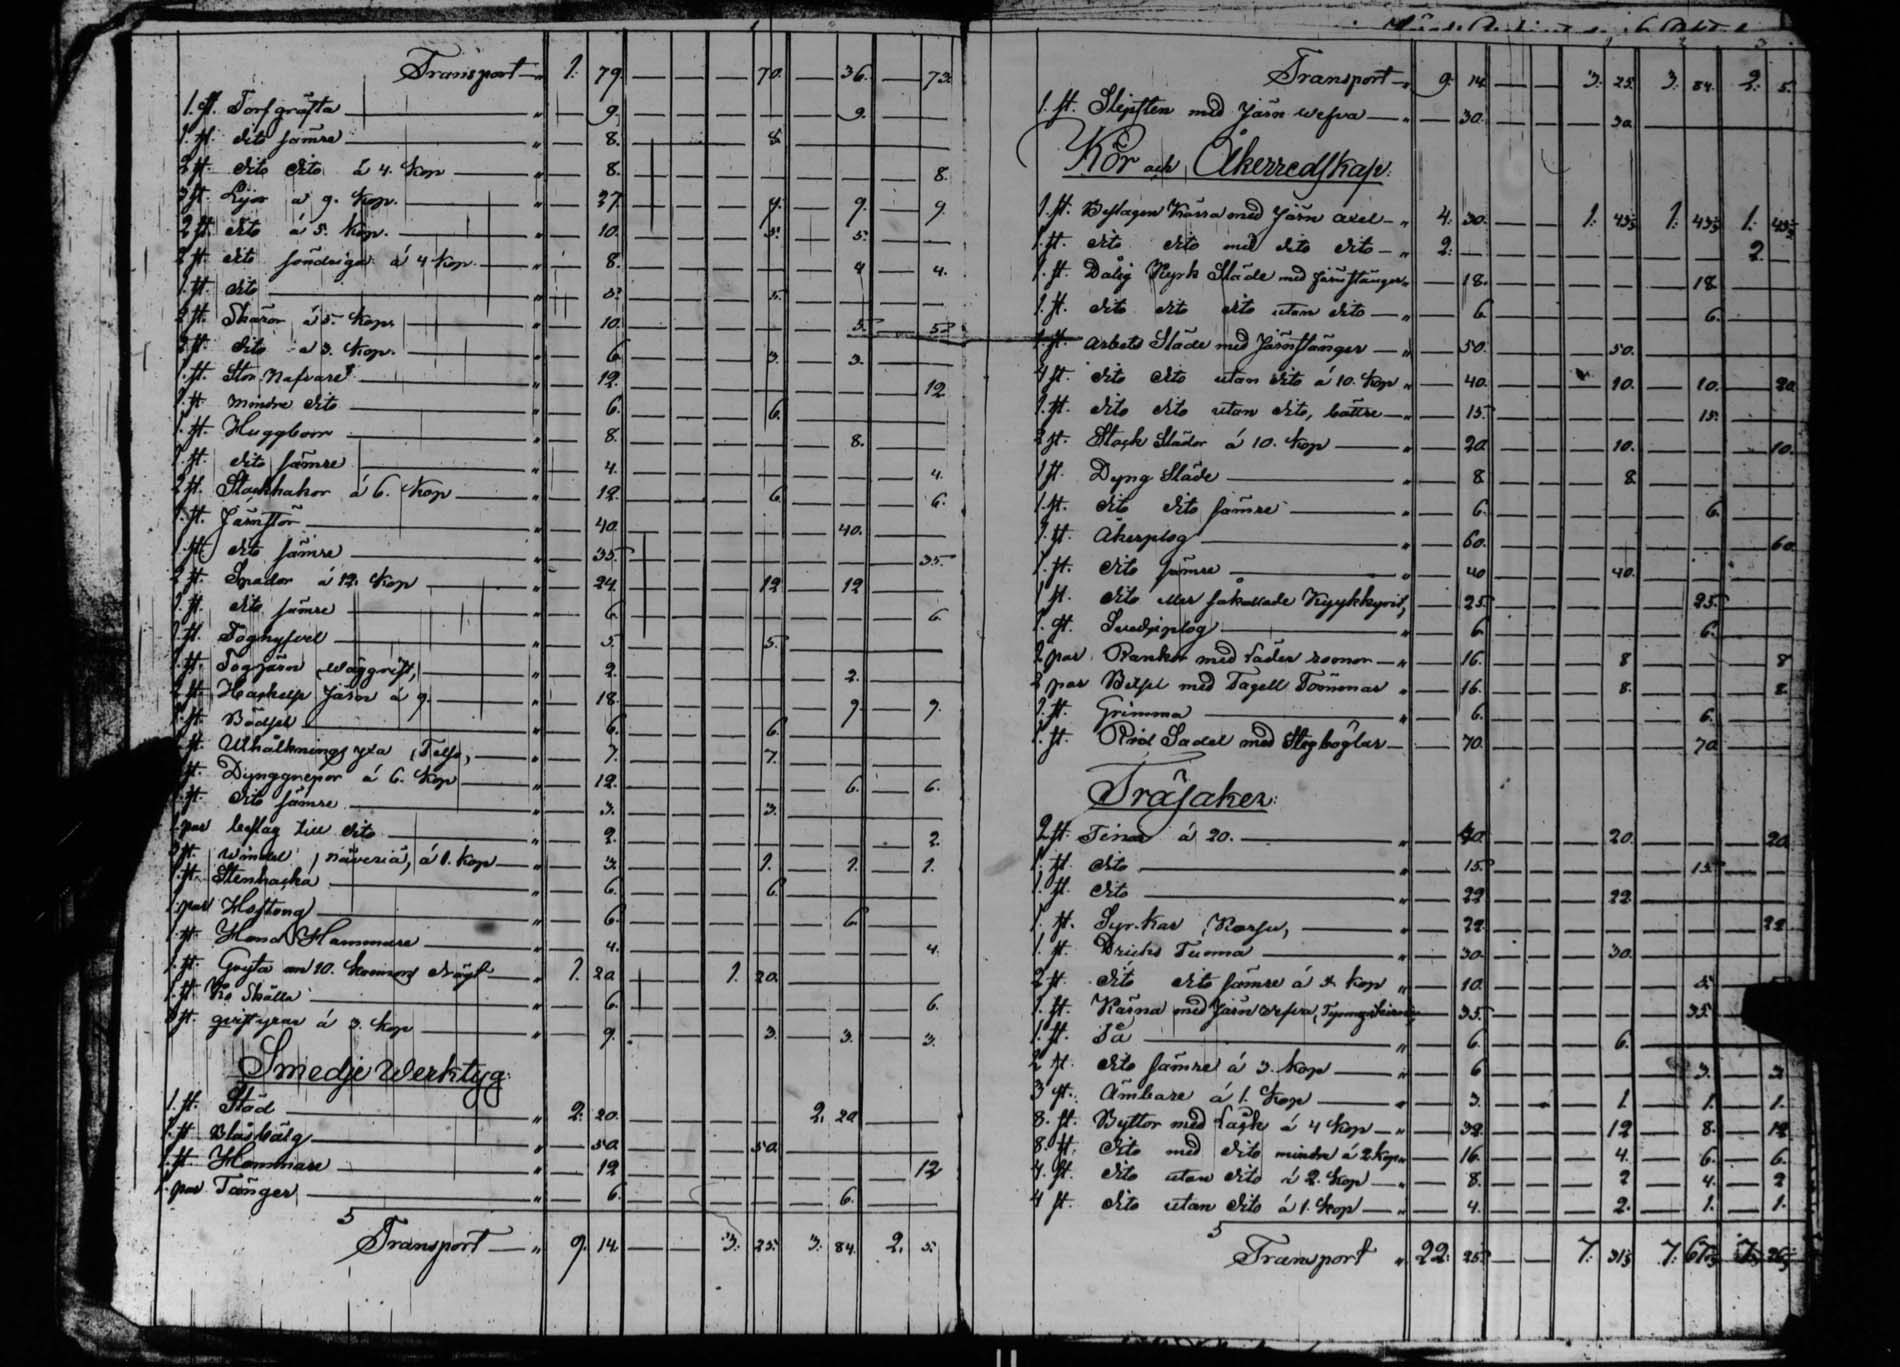 Transport " 1. 79. — — 70. — 36. — 73.
1. st. Torfgräfta " — 9. 9.
1. st. dito sämre " — 8. 8.
2 st. dito dito á 4. Kop " — 8. 8.
3 st. Lijor a 9. Kop. " — 9. 9.
2 st. dito á 5. Kop. " — 10. 5. 5.
2 st. dito söndriga á 4 Kop " — 8. 4 4.
1. st. dito " — 5. 5.
2 st. Skäror á 5. Kop. " — 10. 5. 5.
2 st. dito a 3. Kop. " — 6 3. 3.
1. st. Stor Nafvare " — 12. 12
1. st. mindre dito " — 6. 6.
1. st. Huggborr " — 8. 8.
1. st. dito sämre " — 4. 4.
2 st. Stockhakor á 6. Kop " — 12. 6. 6.
1. st. Järnstör " — 40. 40.
1. st. dito sämre " — 35. 35.
2 st. Spador á 12. Kop " — 24. 12 12
1. st. dito sämre " — 6 6.
1. st. Foghyfvel " — 5. 5.
1. st. Fogjärn " — 2. 2.
2 st. Järn á 9. " — 18. 9. 9.
1. st. " — 6. 6.
1. st. Uthålknings yxa " — 7. 7.
2 st. Dynggrepor á 6. Kop " — 12. 6. 6.
1. st. dito sämre " — 3. 3.
1. par beslag till dito " — 2 2
3 st. á 1. Kop " — 3. 1. 1. 1.
1. st. Stenhacka " — 6. 6.
1. par Hoftong " — 6. 6
1. st. Hand Hammare " — 4. 4.
1. st. Gryta om 10. Kannors " 1. 20 1. 20.
1. st. Ko Skälla " — 6. 6.
3 st. á 3. Kop " — 9. 3. 3. 3.
Smedje Werktyg
1. st. Städ " 2. 20. 2. 20
1. st. Blåsbälg " — 50 50
1. st. Hammare " — 12 12
1. par Tänger " — 6. 6.
Transport " 9. 14. — — 3. 25. 3. 84. 2. 5.
Transport " 9. 14. — — 3. 25. 3. 84. 2. 5.
1. st. Slipsten med Järn wefva " — 30. 30
Kör och Åkerredskap.
1. st. Beslagen Kärra med Järn axel " 4. 30. 1. 1. 1.
1. st. dito dito med dito dito " 2. 2.
1. st. Dålig Kyrk Släde med Järnstänger " — 18. 18.
1. st. dito dito dito utan dito " — 6 6.
1. st. Arbets Släde med Järnstänger " — 50. 50.
4 st. dito dito utan dito á 10. Kop " — 40. 10. 10. 20.
1. st. dito dito utan dito, bättre " — 15 15.
2 st. Stock Slädor á 10. Kop " — 20 10. 10.
1 st. Dyng Släde " — 8 8
1. st. dito dito sämre " — 6. 6.
1. st. Åkerplog " — 60. 60
1. st. dito sämre " — 40 40.
1 st. dito eller så kallade — 25. 25.
1. st. " — 6. 6.
2 par med Läder " — 16. 8 8
2 par Betsel med Tagell Tömmar " — 16. 8. 8
1. st. Grimma " — 6. 6.
1. st. Rid Sadel med Stegböglar — 70. 70
Träsaker:
2 st. Tinor á 20. " — 40. 20. 20.
1 st. dito " — 15. 15.
1. st. dito " — 22 22
1. st. Syrkar " — 22. 22
1. st. Dricks Tunna " — 30. 30.
2 st. dito dito sämre á 5 Kop " — 10. 5.
1. st. Kärna med Järn wefva — 35. 35.
1. st. Så " — 6. 6.
2 st. dito sämre á 3. Kop " — 6 3. 3
3 st. Ämbare á 1. Kop " — 3. 1. 1. 1.
8. st. Byttor med Låck á 4 Kop " — 32. 12 8. 12
8. st. dito med dito mindre á 2 Kop " — 16. 4. 6. 6.
4. st. dito utan dito á 2. Kop " — 8. 2 4. 2
4 st. dito utan dito á 1. Kop " — 4. 2. 1. 1.
Transport " 22. 25. — — 7. 7. 7.